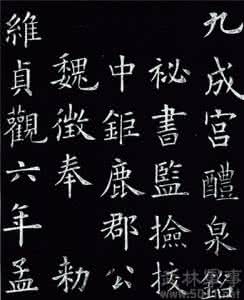 九成宮醴泉銘
祕書監撿挍
中鉅鹿郡公
魏徵奉 勑
維貞觀六年孟